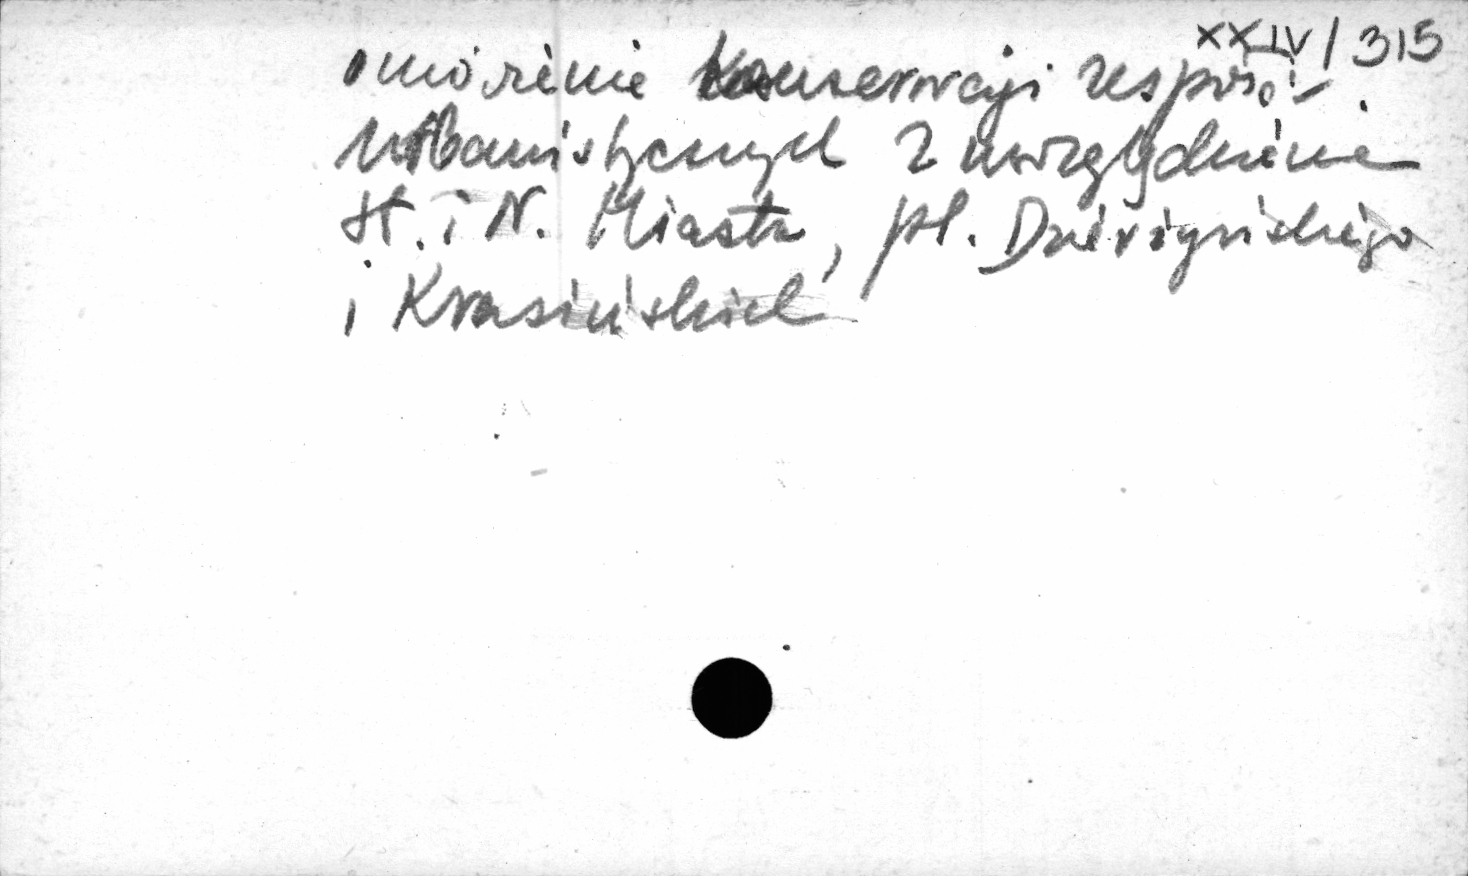 XXIV/315
omówienie konserwacji zespoł.
urbanistycznych z uwzględnienie
St. i N. Miasta, pl. Dzierżyńskiego
i Krasińskich